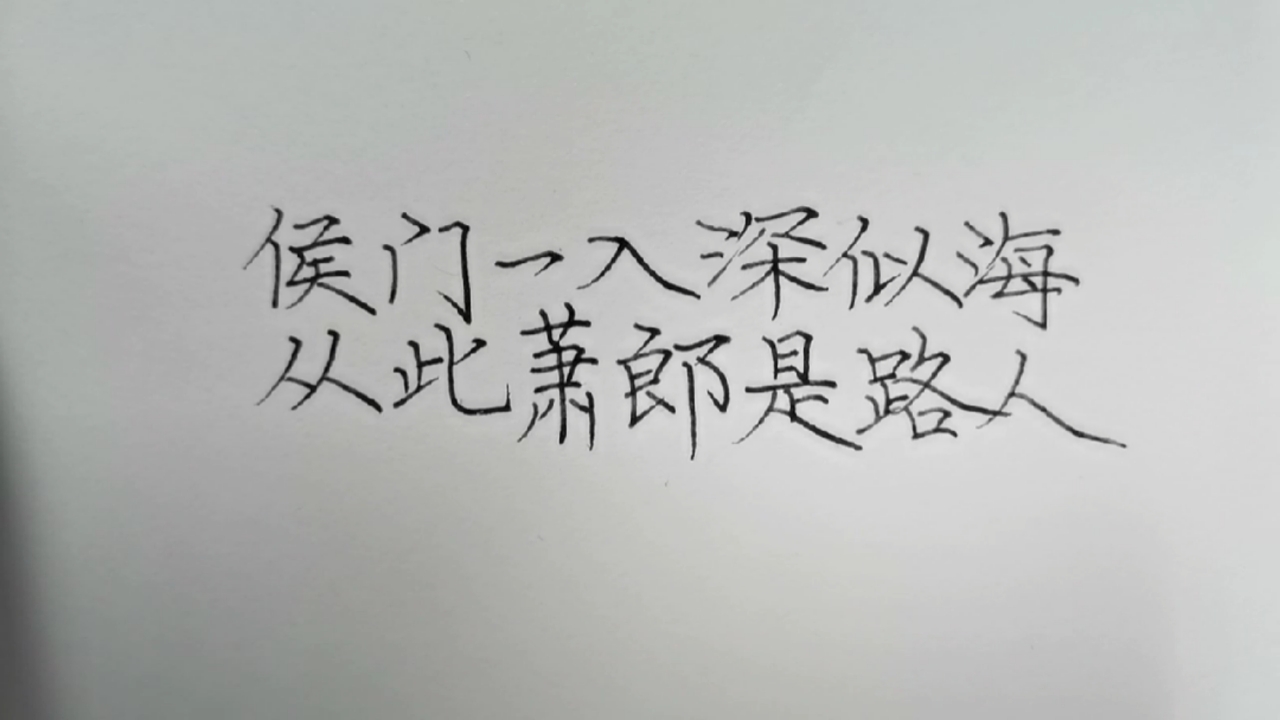 侯门一入深似海
从此萧郎是路人